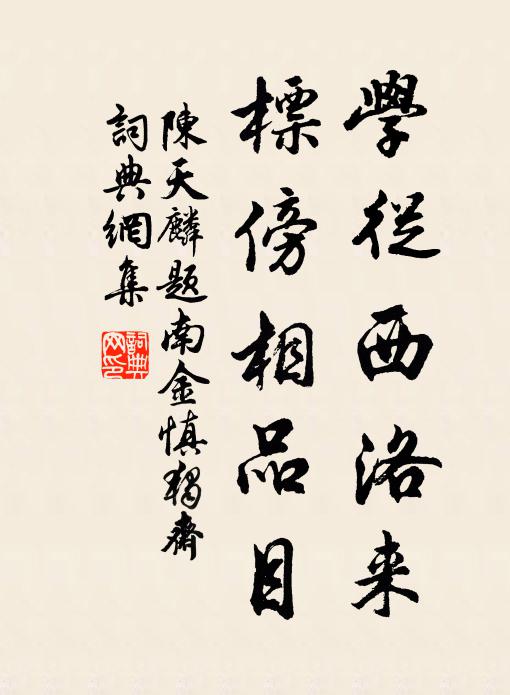 學從西洛来
標傍相品目
陳天麟題南金慎獨齋
詞典網集
詞典网印